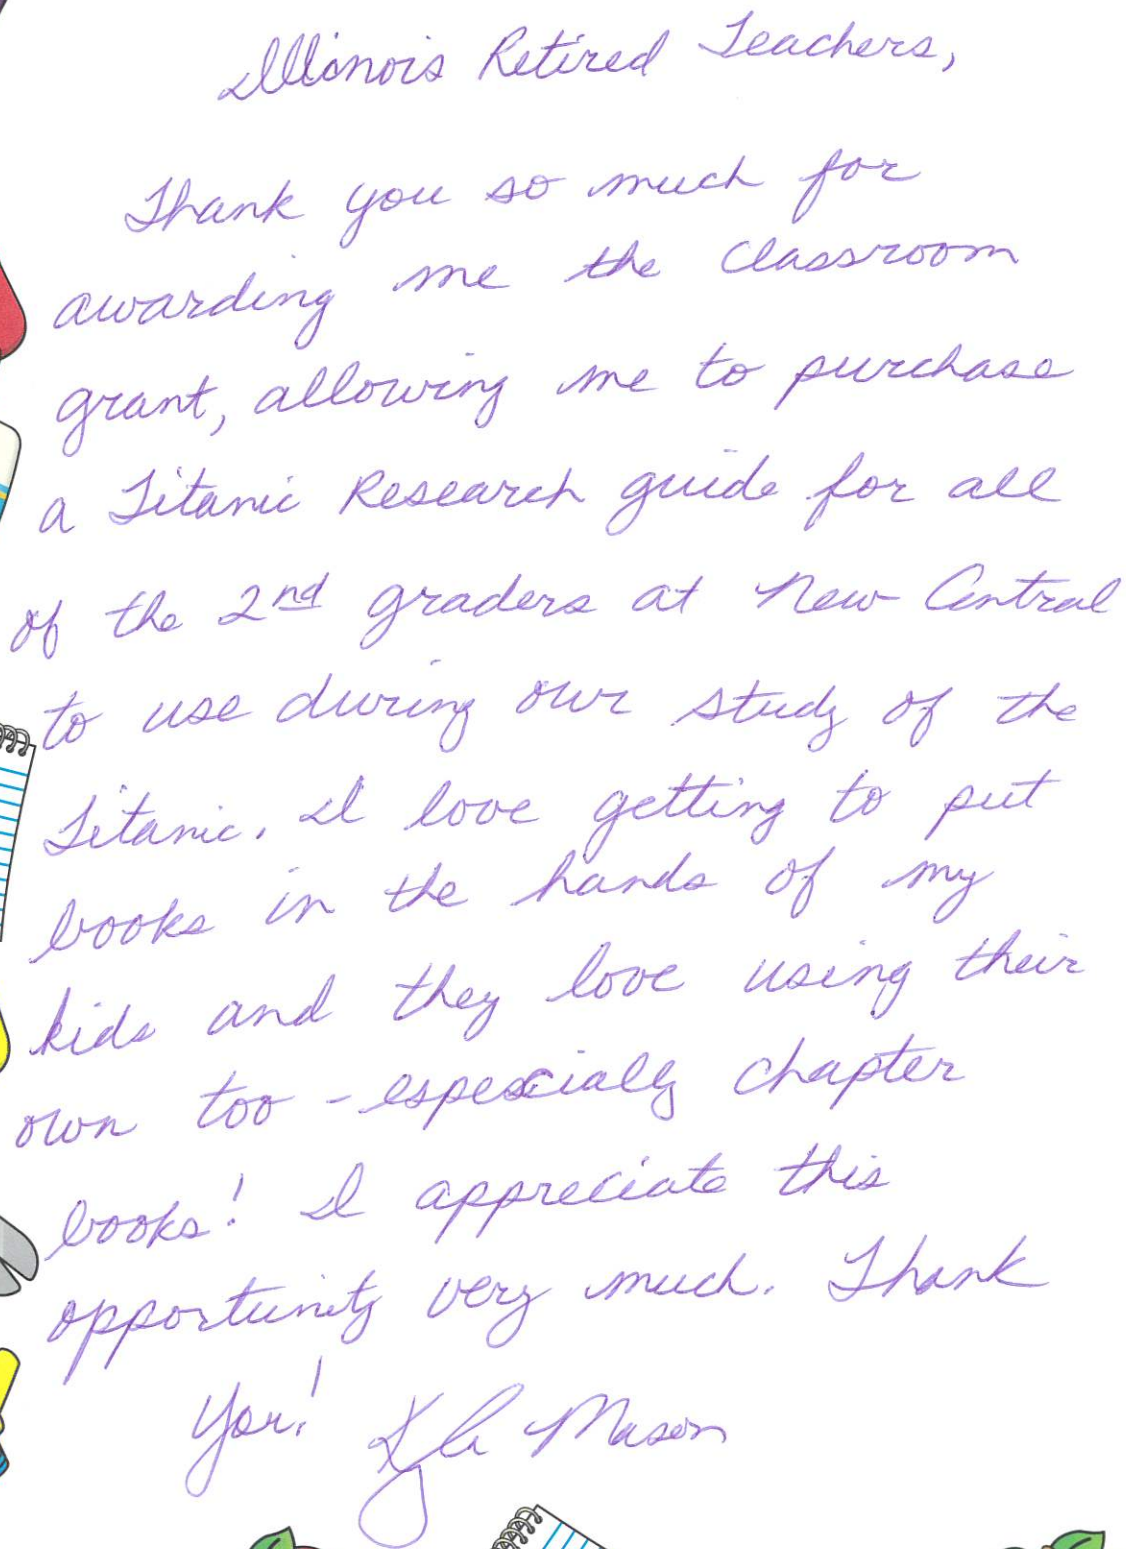 Illinois Retired Teachers,
Thank you so much for
awarding me the classroom
grant, allowing me to purchase
a Titanic Research guide for all
of the 2nd graders at New Central
to use during our study of the
Titanic. I love getting to put
books in the hands of my
kids and they love using their
own too - especially chapter
books! I appreciate this
opportunity very much. Thank
You! Mason